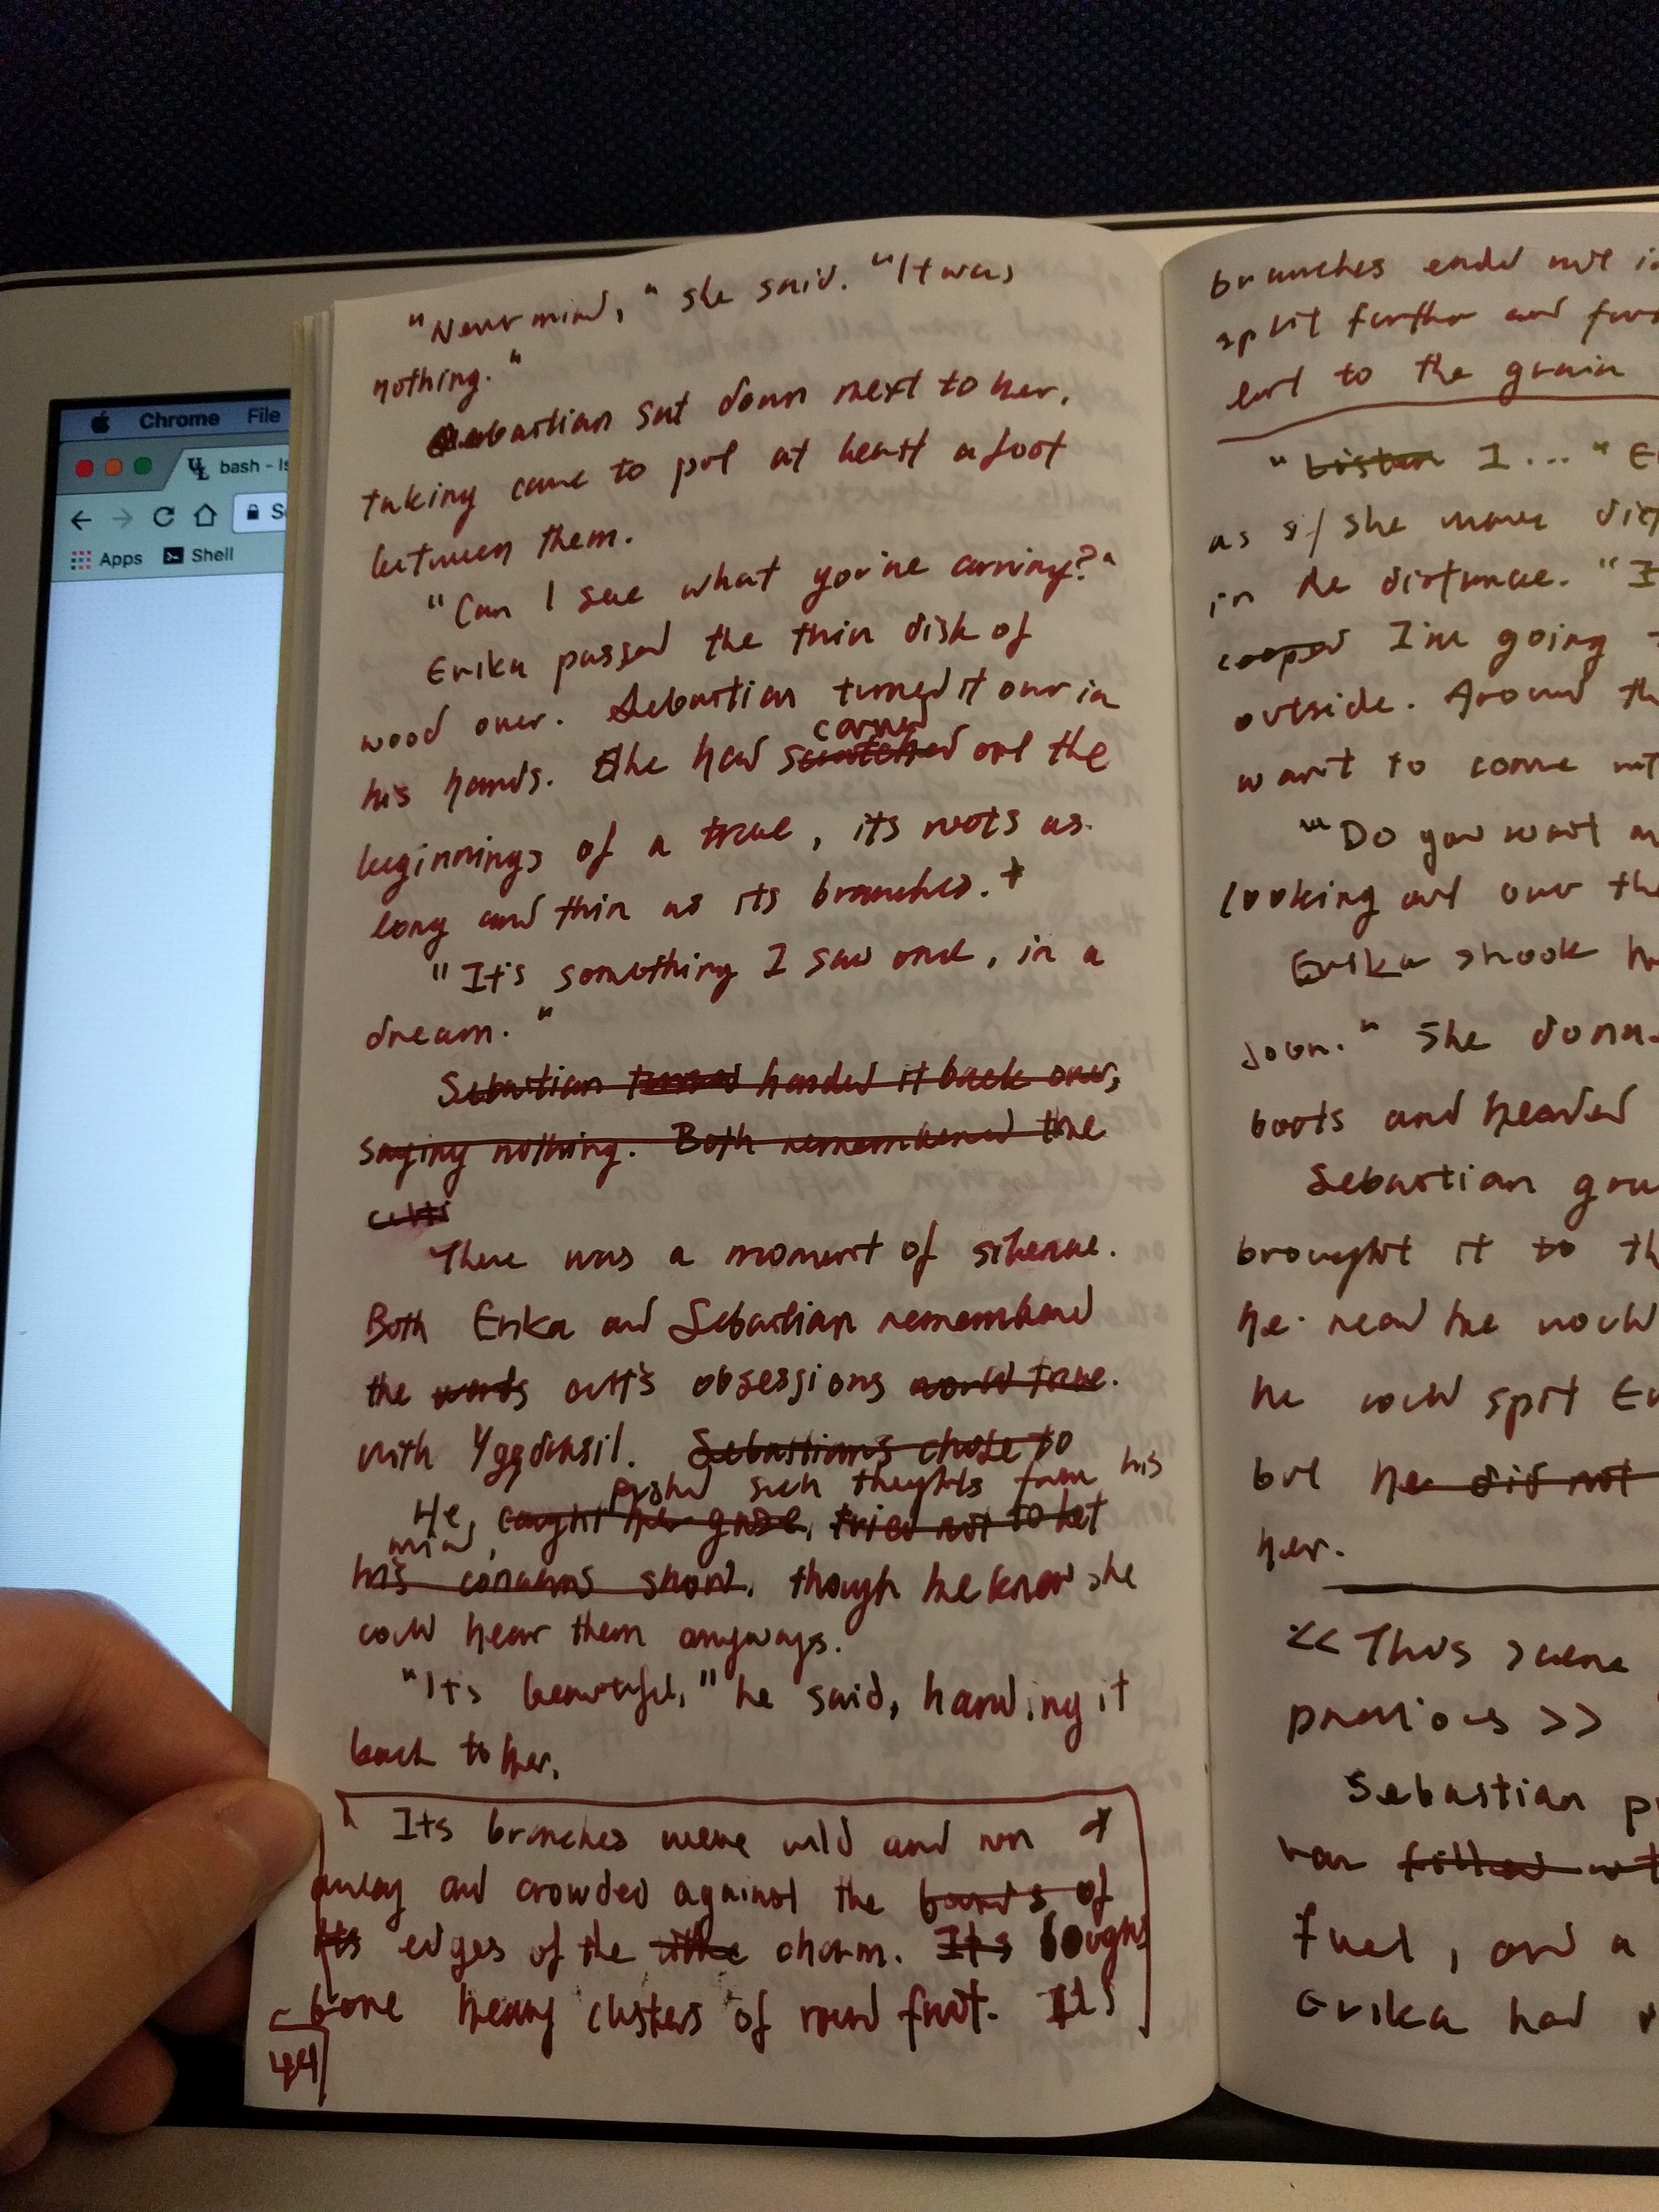 Chrome File
bash - ls
Apps Shell
"Never mind," she said. "It was
nothing."
Sebastian sat down next to her,
taking care to put at least a foot
between them.
"Can I see what you're carving?"
Erika passed the thin disk of
wood over. Sebastian turned it over in
carved
his hands. She had scratched out the
beginnings of a tree, its roots as
long and thin as its branches. +
"It's something I saw once, in a
dream."
Sebastian turned handed it back over,
saying nothing. Both remembered the
There was a moment of silence.
Both Erika and Sebastian remembered
the words cult's obsessions world tree.
with Yggdrasil. Sebastian's chose to
pushed such thoughts from his
He, caught her gaze, tried not to let
mind,
his concerns show, though he knew she
could hear them anyways.
"It's beautiful," he said, handing it
back to her.
Its branches were wild and ran +
away and crowded against the of
its edges of the charm. Its boughs
bore heavy clusters of round fruit. Its
44
branches ended not
split further and
to the grain
"Listen I..."
as if she were
in the distance. "I
I'm going
outside. Around
want to come
"Do you want
looking out over
Erika shook
soon." She
boots and headed
Sebastian
brought it to
he would
he could spit
but he did not
her.
<< This scene
previous >>
Sebastian
filled
fuel, and a
Erika had